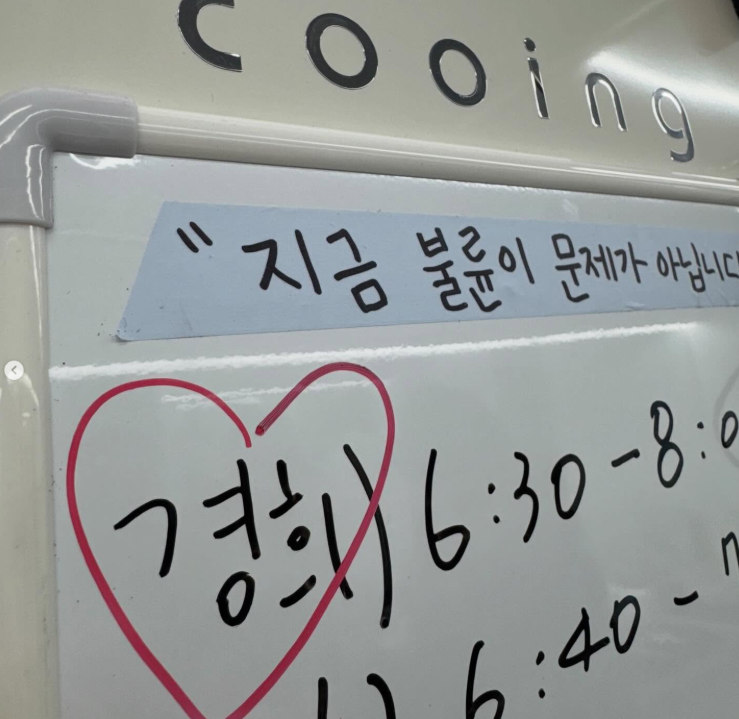 cooing
" 지금 불륜이 문제가 아닙니다
경희) 6:30-8:0
6:40-